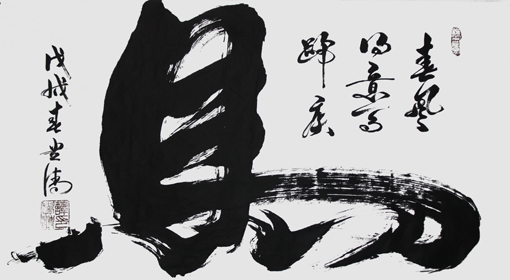 春風
得意馬
蹄疾
馬
戊戌春